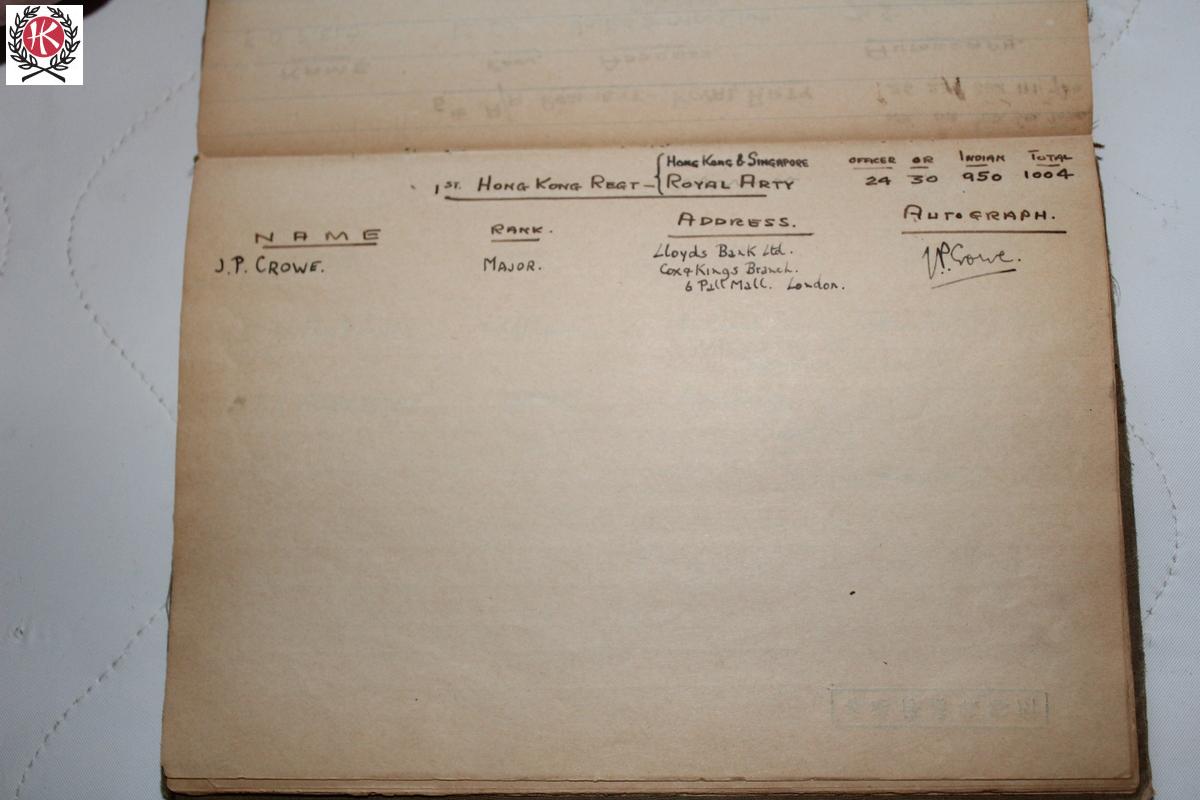 HK
HONG KONG & SINGAPORE OFFICER OR INDIAN TOTAL
1ST. HONG KONG REGT - { ROYAL ARTY 24 30 950 1004
NAME RANK. ADDRESS. AUTOGRAPH.
J.P. CROWE. MAJOR. Lloyds Bank Ltd. J.P. Crowe.
Cox & Kings Branch.
6 Pall Mall. London.